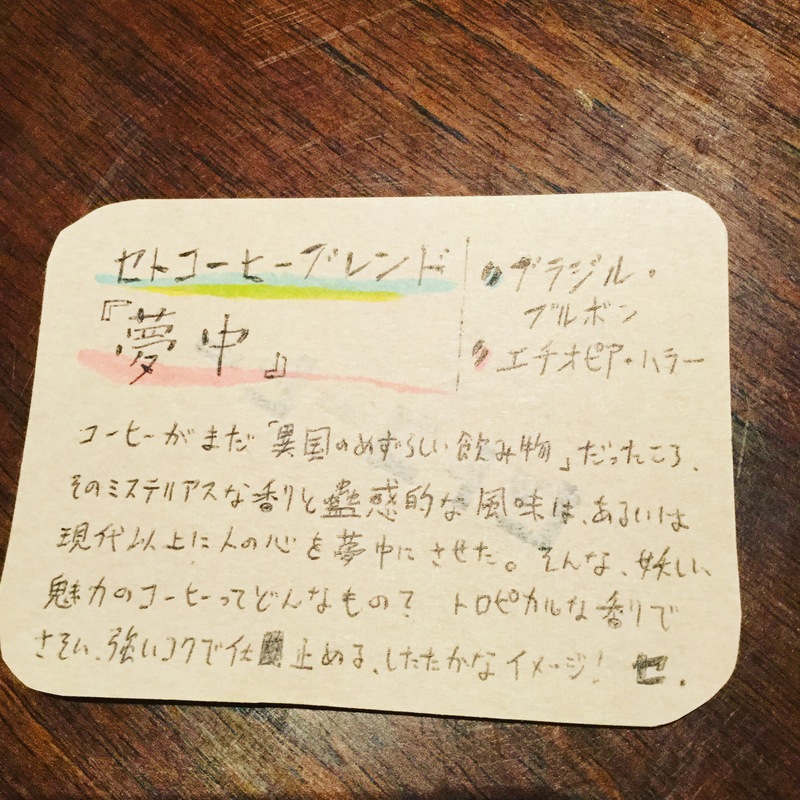 セトコーヒーブレンド
『夢中』
ブラジル・
ブルボン
エチオピア・ハラー
コーヒーがまだ「異国のめずらしい飲み物」だったころ、
そのミステリアスな香りと蠱惑的な風味は、あるいは
現代以上に人の心を夢中にさせた。そんな、妖しい
魅力のコーヒーってどんなもの？ トロピカルな香りで
さそい、強いコクで仕止める、したたかなイメージ！ セ.